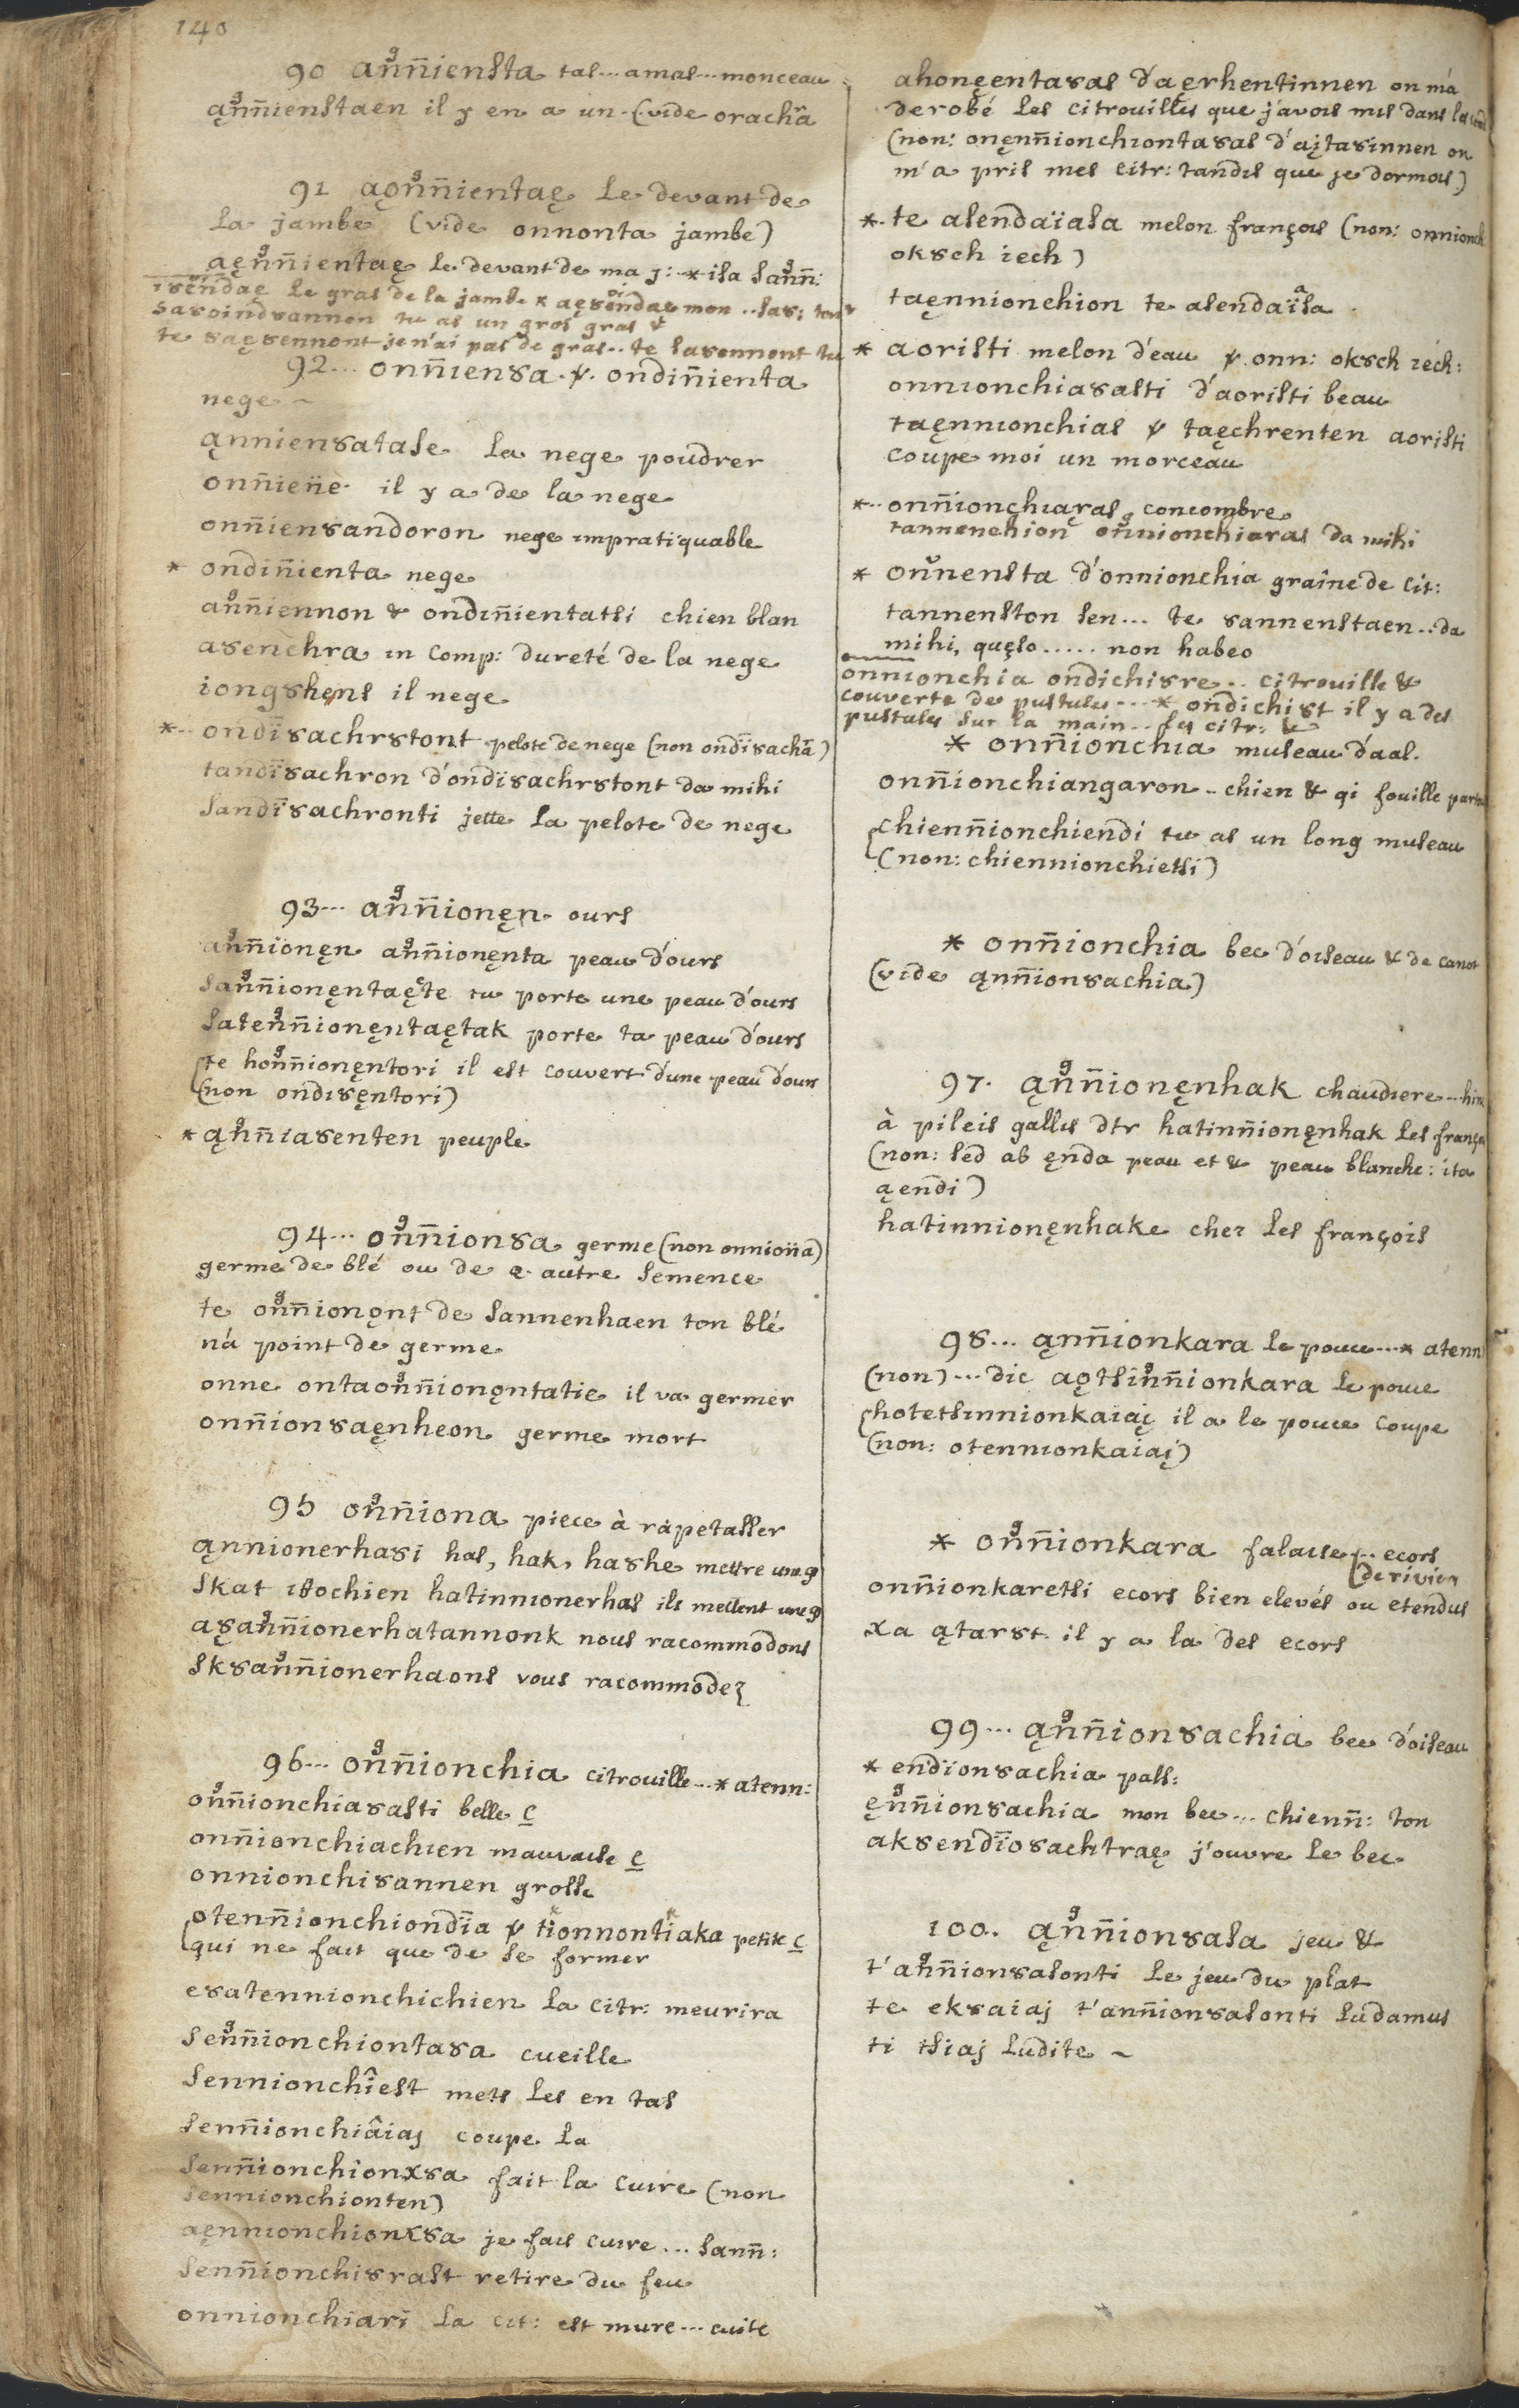 140
90 an̄n̄iensta tas... amas... monceau
ąn̄n̄ienstaen il y en a un. (vide orachā
91 aǫn̄n̄ientaę le devant de
la jambe (vide onnonta jambe)
aęn̄n̄ientaę le devant de ma j: * isa san̄n̄:
le gras de la jambe * mon
tu as un gros gras &
je n'ai pas de gras.. te
92... on̄n̄iensa . ꝟ. ondin̄ienta
nege ~
ąnniensatase la nege poudrer
on̄n̄ien̈e il y a de la nege
on̄n̄ien8andoron nege impratiquable
* ondin̄ienta nege
an̄n̄iennon & ondin̄ientatsi chien blan
a8enchra in comp: dureté de la nege
iong8hens il nege
*.. ondi8achr8tont pelote de nege (non ondi8achā)
tandi8achron d'ondi8achr8tont da mihi
sandi8achronti jette la pelote de nege
93... an̄n̄ionęn ours
an̄n̄ionęn an̄n̄ionęnta peau d'ours
san̄n̄ionęntaęte tu porte une peau d'ours
saten̄n̄ionęntaętak porte ta peau d'ours
te hon̄n̄ionęntori il est couvert d'une peau d'ours
(non ondi8ęntori)
* ąn̄n̄ia8enten peuple
94... on̄n̄ion8a germe (non onnion̈a)
germe de blé ou de e autre semence
te on̄n̄ionǫnt de sannenhaen ton blé
n'a point de germe
onne ontaon̄n̄ionǫntatie il va germer
on̄n̄ion8aęnheon germe mort
95 on̄n̄iona piece à rapetasser
ąnnionerha8i has, hak, ha8he mettre une p
skat itochien hatinnionerhas ils mettent une p
a8an̄n̄ionerhatannonk nous racommodons
sk8an̄n̄ionerhaons vous racommodez
96... on̄n̄ionchia citrouille... * atenn:
on̄n̄ionchia8asti belle c
on̄n̄ionchiachien mauvaise c
onnionchi8annen grosse
oten̄n̄ionchiondia ꝟ tionnontiaka petite c
qui ne fait que de se former
e8atennionchichien la citr: meurira
sen̄n̄ionchionta8a cueille
sennionchîest mets les en tas
sen̄n̄ionchiâiaj coupe la
sen̄n̄ionchionx8a fait la cuire (non
sennionchionten)
aęnnionchionx8a je fais cuire... san̄n̄:
sen̄n̄ionchi8rast retire du feu
onnionchiari la cit: est mure... cuite
ahonęenta8as d'aerhentinnen on m'a
derobé les citrouilles que j'avois mis dans
(non: onęn̄n̄ionchionta8as d'aįta8innen on
m'a pris mes citr: tandis que je dormois)
*. te asendaïasa melon françois (non: onnionch
oksch iech)
taęnnionchion te asendaïsa
* aoristi melon d'eau ꝟ. onn: oksch iech:
onnionchia8asti d'aoristi beau
taęnnionchias ꝟ taęchrenten aoristi
coupe moi un morceau
*.. on̄n̄ionchiaras, concombre
tannenchion on̄nionchiaras da mihi
* onnensta d'onnionchia graîne de cit:
tannenston sen... te 8annenstaen.. da
mihi, quęso..... non habeo
onnionchia ondichi8re.. citrouille &
couverte de pustules... * ondichi8t il y a des
pustules sur la main... les citr: &
* on̄n̄ionchia museau d'a͞al.
on̄n̄ionchiangaron.. chien & qi fouille partout
chien̄n̄ionchiendi tu as un long museau
(non: chiennionchietsi)
* on̄n̄ionchia bec d'oiseau & de canot
(vide ąn̄n̄ion8achia)
97. ąn̄n̄ionęnhak chaudiere... hinc
à pileis gallis dtr hatin̄n̄ionęnhak les françois
(non: sed ab ęnda peau et & peau blanche: ita
ąendi)
hatinnionęnhake chez les françois
98... ąn̄n̄ionkara le pouce... * atenn
(non)... dic aǫtsin̄n̄ionkara le pouce
hotetsinnionkaiaį il a le pouce coupe
(non: otennionkaiaį)
* on̄n̄ionkara falaise... ecors
(de rivier
on̄n̄ionkaretsi ecors bien elevés ou etendus
xa ątar8t il y a la des ecors
99... ąn̄n̄ion8achia bec d'oiseau
* endion8achia pass:
ęn̄n̄ion8achia mon bec... chienn̄: ton
ak8endio8achtraę j'ouvre le bec
100.. ąn̄n̄ion8asa jeu &
t'an̄n̄ion8asonti le jeu du plat
te ek8aiaj t'an̄n̄ion8asonti ludamus
ti tsiaj ludite ~